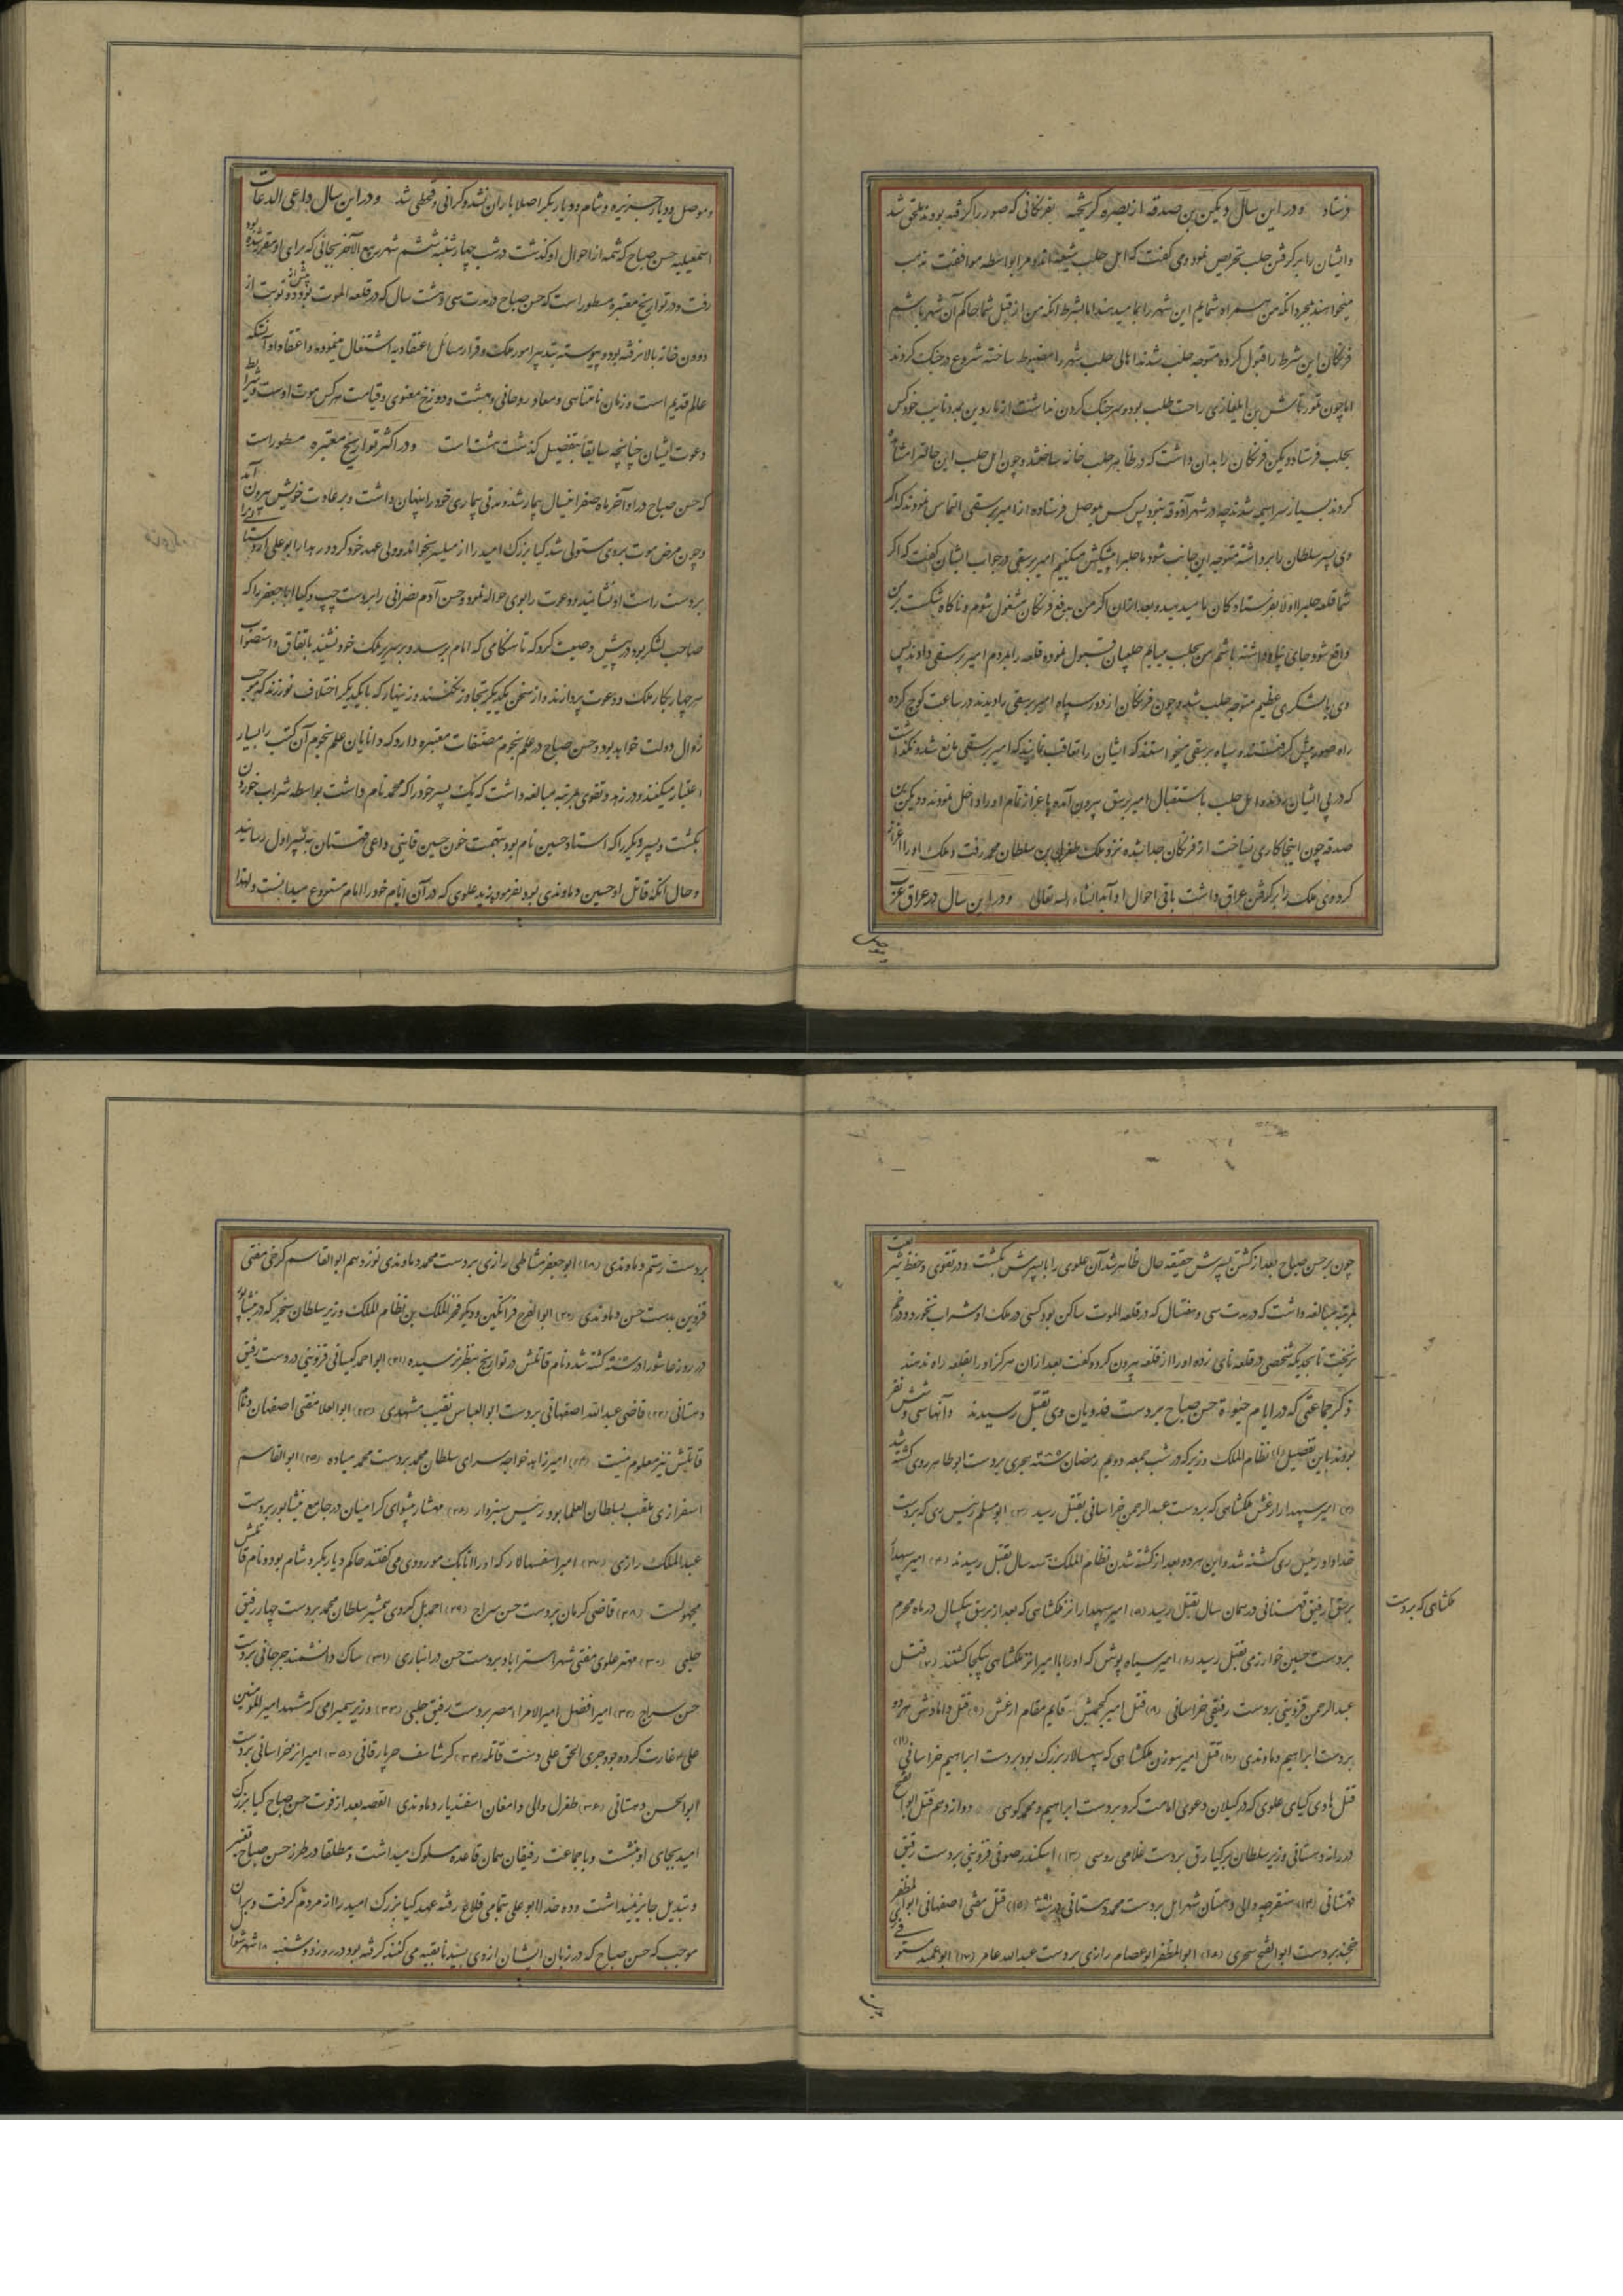 فرستاد و در این سال دیکین بن صدقه از بصره گریخته بفرنگانی که صور را گرفته بودند ملحق شد
و ایشان را بر گرفتن حلب تحریص نمود و می گفت که اهل حلب شیعه اند و مرا بواسطه موافقت مذهب
میخواهند بمجرد آنکه من همراه شمایم این شهر را بما میدهند اما بشرط آنکه من از قبل شما حاکم آن شهر باشم
فرنگان این شرط را قبول کرده متوجه حلب شدند اهالی حلب شهر را مضبوط ساخته شروع در جنک کردند
اما چون تمورتاش بن ایلغازی راحت طلب بود و سر جنک کردن نداشت از ماردین بیرون نایب خود کس
بحلب فرستاد و دیکین فرنگان را بدان داشت که در ظاهر حلب خانه ساختند و چون اهل حلب این حالت را مشاهده
کردند بسیار سراسیمه شدند چه در شهر آذوقه نبود پس کس بموصل فرستاده از امیر برسقی التماس نمودند که اگر
وی پسر سلطان را برداشته متوجه این جانب شود ما حلب را پیشکش میکنیم امیر برسقی در جواب ایشان گفت که اگر
شما قلعه حلب را اولا بفرستادکان ما میدهید و بعد از آن اگر من بدفع فرنگان مشغول شوم و ناگاه شکست بر من
واقع شود جای پناه داشته باشم من بحلب میایم حلبیان قبول نموده قلعه را بمردم امیر برسقی دادند پس
وی با لشکری عظیم متوجه حلب شد و چون فرنگان از دور سپاه امیر برسقی را دیدند در ساعت کوچ کرده
راه صور پیش گرفتند و سپاه برسقی میخواستند که ایشان را تعاقب نمایند که امیر برسقی مانع شد و نگذاشت
که در پی ایشان روند و اهل حلب باستقبال امیر برسق بیرون آمده باعزاز تمام او را داخل نمودند و دیکین بن
صدقه چون اینجا کاری نساخت از فرنگان جدا شده نزد ملک طغرل بن سلطان محمد رفت و ملک او را اعزاز
کرد و وی ملک را بر گرفتن عراق داشت باقی احوال او آید انشاء الله تعالی و در این سال در عراق عرب
و موصل
و موصل و دیار جزیره و شام و دیار بکر اصلا باران نشد و گرانی و قحطی شد و در این سال داعی الدعات
اسمعیلیه حسن صباح که شمه از احوال او گذشت در شب چهارشنبه ششم شهر ربیع الآخر بجائی که برای او مقرر شده بود
رفت و در تواریخ معتبره مسطور است که حسن صباح در مدت سی و هشت سال که در قلعه الموت بود دو نوبت از
درون خانه بالا نرفته بود و پیوسته بتدبیر امور ملک و قرار مسائل اعتقادیه اشتغال مینموده و اعتقاد او آنکه
عالم قدیم است و زمان نامتناهی و معاد روحانی و بهشت و دوزخ معنوی و قیامت هر کس موت اوست و شرایط
دعوت ایشان چنانچه سابقا بتفصیل گذشت هشت است و در اکثر تواریخ معتبره مسطور است
که حسن صباح در اواخر ماه صفر اینسال بیمار شد و مدتی بیماری خود را پنهان داشت و بر عادت خویش بیرون آمد
و چون مرض موت بر وی مستولی شد کیا بزرک امید را از میلسر بخواند و ولی عهد خود کرد و دهدار ابو علی اردستانی را
بر دست راست او نشانید و دعوت را بوی حواله نمود و حسن آدم نضرانی را بر دست چپ و کیا ابا جعفر را که
صاحب لشکر بود در پیش وصیت کرد که تا هنگامی که امام برسد و بر سریر ملک خود نشیند باتفاق و استصواب
هر چهار بکار ملک و دعوت پردازند و از سخن یکدیگر تجاوز نکنند و زینهار که با یکدیگر اختلاف نورزند که موجب
زوال دولت خواهد بود و حسن صباح در علم نجوم مصنفات معتبره دارد که دانایان علم نجوم آن کتب را بسیار
اعتبار میکنند و در زهد و تقوی بمرتبه مبالغه داشت که یک پسر خود را که محمد نام داشت بواسطه شراب خوردن
بکشت و پسر دیگر را که استاد حسین نام بود بتهمت خون حسین قاینی داعی قهستان به پسر اول رسانید
و حال آنکه قاتل او حسین دماوندی بود بفرموده زید علوی که در آن ایام خود را امام مستودع میدانست و لهذا
چون بر حسن صباح بعد از کشتن پسرش حقیقه حال ظاهر شد آن علوی را با پسرش بکشت و در تقوی و حفظ شریعت
بمرتبه مبالغه داشت که در مدت سی و هفتسال که در قلعه الموت ساکن بود کسی در ملک او شراب نخورد و در خم
نریخت تا بحدیکه شخصی در قلعه نای زده او را از قلعه بیرون کرد و گفت بعد از آن هرگز او را بقلعه راه ندهند
ذکر جماعتی که در ایام حیوة حسن صباح بر دست فدویان وی بقتل رسیدند و آنها سی و شش نفر
بودند باین تفصیل (۱) نظام الملک وزیر که در شب جمعه دویم رمضان سنه ۴۸۵ هجری بر دست ابو طاهر روی کشته شد
(۲) امیر سپهدار ارغش ملکشاهی که بر دست عبد الرحمن خراسانی بقتل رسید (۳) ابو مسلم رئیس ری که بر دست
خداداد رئیس ری کشته شد و این هر دو بعد از کشته شدن نظام الملک به سه سال بقتل رسیدند (۴) امیر سپهدار
ملکشاهی که بر دست
برسق بر دست رفیق قهستانی در همان سال بقتل رسید (۵) امیر سپهدار انز ملکشاهی که بعد از برسق بیکسال در ماه محرم
بر دست حسین خوارزمی بقتل رسید (۶) امیر سیاه پوش که او را با امیر انز ملکشاهی بیکجا کشتند (۷) قتل
عبد الرحمن قزوینی بر دست رفیقی خراسانی (۸) قتل امیر کجمیش قایم مقام ارغش (۹) قتل دامادش هر دو
بر دست ابراهیم دماوندی (۱۰) قتل امیر سوزن ملکشاهی که سپهسالار بزرک بود بر دست ابراهیم خراسانی (۱۱)
قتل هادی کیای علوی که در گیلان دعوی امامت کرد بر دست ابراهیم و محمد کوهی دوازدهم قتل ابو الفتح
دردانه دهستانی وزیر سلطان برکیارق بر دست غلامی روسی (۱۳) اسکندر صوفی قزوینی بر دست رفیق
قهستانی (۱۴) سنقرجه والی دهستان شهر امل بر دست محمد دهستانی در سنه (۱۵) قتل مفتی اصفهانی ابو المظفر
خجند بر دست ابو الفتح سجزی (۱۶) ابو المظفر ابو عصام رازی بر دست عبد الله عامر (۱۷) ابو عمید مستوفی
بر دست رستم دماوندی (۱۸) ابو جعفر مشاطی رازی بر دست محمد دماوندی نوزدهم ابو القاسم کرخی مفتی
قزوین بدست حسن دماوندی (۲۰) ابو الفرج قراتکین و دیگر فخر الملک بن نظام الملک وزیر سلطان سنجر که در نیشاپور
در روز عاشورا در سنه کشته شد و نام قاتلش در تواریخ بنظر نرسیده (۲۱) ابو احمد کیسانی قزوینی در دست رفیق
دهستانی (۲۲) قاضی عبد الله اصفهانی بر دست ابو العباس نقیب مشهدی (۲۳) ابو العلا مفتی اصفهان و نام
قاتلش نیز معلوم نیست (۲۴) امیر زاهد خواجه سرای سلطان محمد بر دست محمد صیاده (۲۵) ابو القاسم
اسفرازی ملقب بسلطان العلما بود رئیس سبزوار (۲۶) مهشار پیشوای کرامیان در جامع نیشابور بر دست
عبد الملک رازی (۲۷) امیر اسفهسالار که او را اتابک مورودی می گفتند حاکم دیار بکر و شام بود و نام قاتلش
مجهولست (۲۸) قاضی کرمان بر دست حسن سراج (۲۹) احمدیل کردی همشیر سلطان محمد بر دست چهار رفیق
حلبی (۳۰) مهتر علوی مفتی شهر استراباد بر دست حسن درانباری (۳۱) ساک دانشمند جرجانی بر دست
حسن سراج (۳۲) امیر افضل امیر الامراء مصر بر دست رفیق حلبی (۳۳) وزیر سمیرامی که مشهد امیر المؤمنین
علی را غارت کرده بود جری الحق علی دست قاتله (۳۴) کرشاسف جرباذقانی (۳۵) امیر انز خراسانی بر دست
ابو الحسن دهستانی (۳۶) طغرل والی دامغان اسفندیار دماوندی القصه بعد از فوت حسن صباح کیا بزرک
امید بجای او نشست و با جماعت رفیقان همان قاعده سلوک میداشت و مطلقا در طرز حسن صباح تغییر
و تبدیل جایز نمیداشت و ده خدا ابو علی بتمامی قلاع رفته عهد کیا بزرک امید را از مردم گرفت و بر آن
موجب که حسن صباح که در زبان ایشان از وی بسیدنا تعبیه می کنند کرفته بود در روز دوشنبه ۱۸ شهر شوال